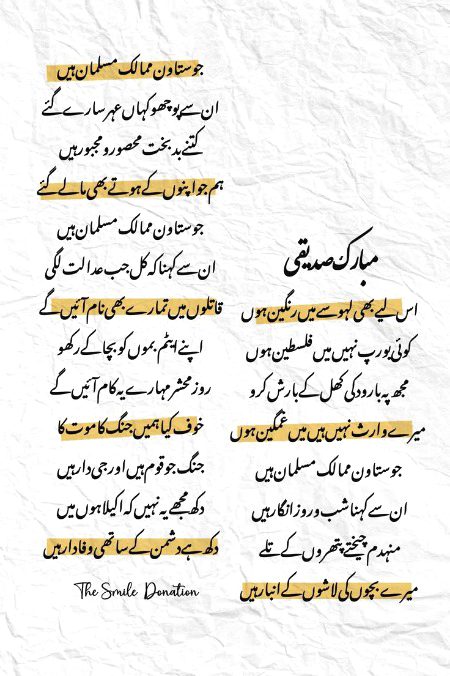 مبارک صدیقی
اس لیے بھی لہو سے میں رنگین ہوں
کوئی یورپ نہیں میں فلسطین ہوں
مجھ پہ بارود کی کھل کے بارش کرو
میرے وارث نہیں ہیں میں غمگین ہوں
جو ستاون ممالک مسلمان ہیں
ان سے کہنا شب و روز انگار ہیں
منہدم چیختے پتھروں کے تلے
میرے بچوں کی لاشوں کے انبار ہیں
جو ستاون ممالک مسلمان ہیں
ان سے پوچھو کہاں عہر سارے گئے
کتنے بدبخت محصور و مجبور ہیں
ہم جو اپنوں کے ہوتے بھی مالے گئے
جو ستاون ممالک مسلمان ہیں
ان سے کہنا کہ کل جب عدالت لگی
قاتلوں میں تمارے بھی نام آئیں گے
اپنے ایٹم بموں کو بچا کے رکھو
روز محشر مہارے یہ کام آئیں گے
خوف کیا ہمیں جنگ کا موت کا
جنگ جو قوم ہیں اور جی دار ہیں
دکھ مجھے یہ نہیں کہ اکیلا ہوں میں
دکھ ہے دشمن کے ساتھی وفادار ہیں
The Smile Donation